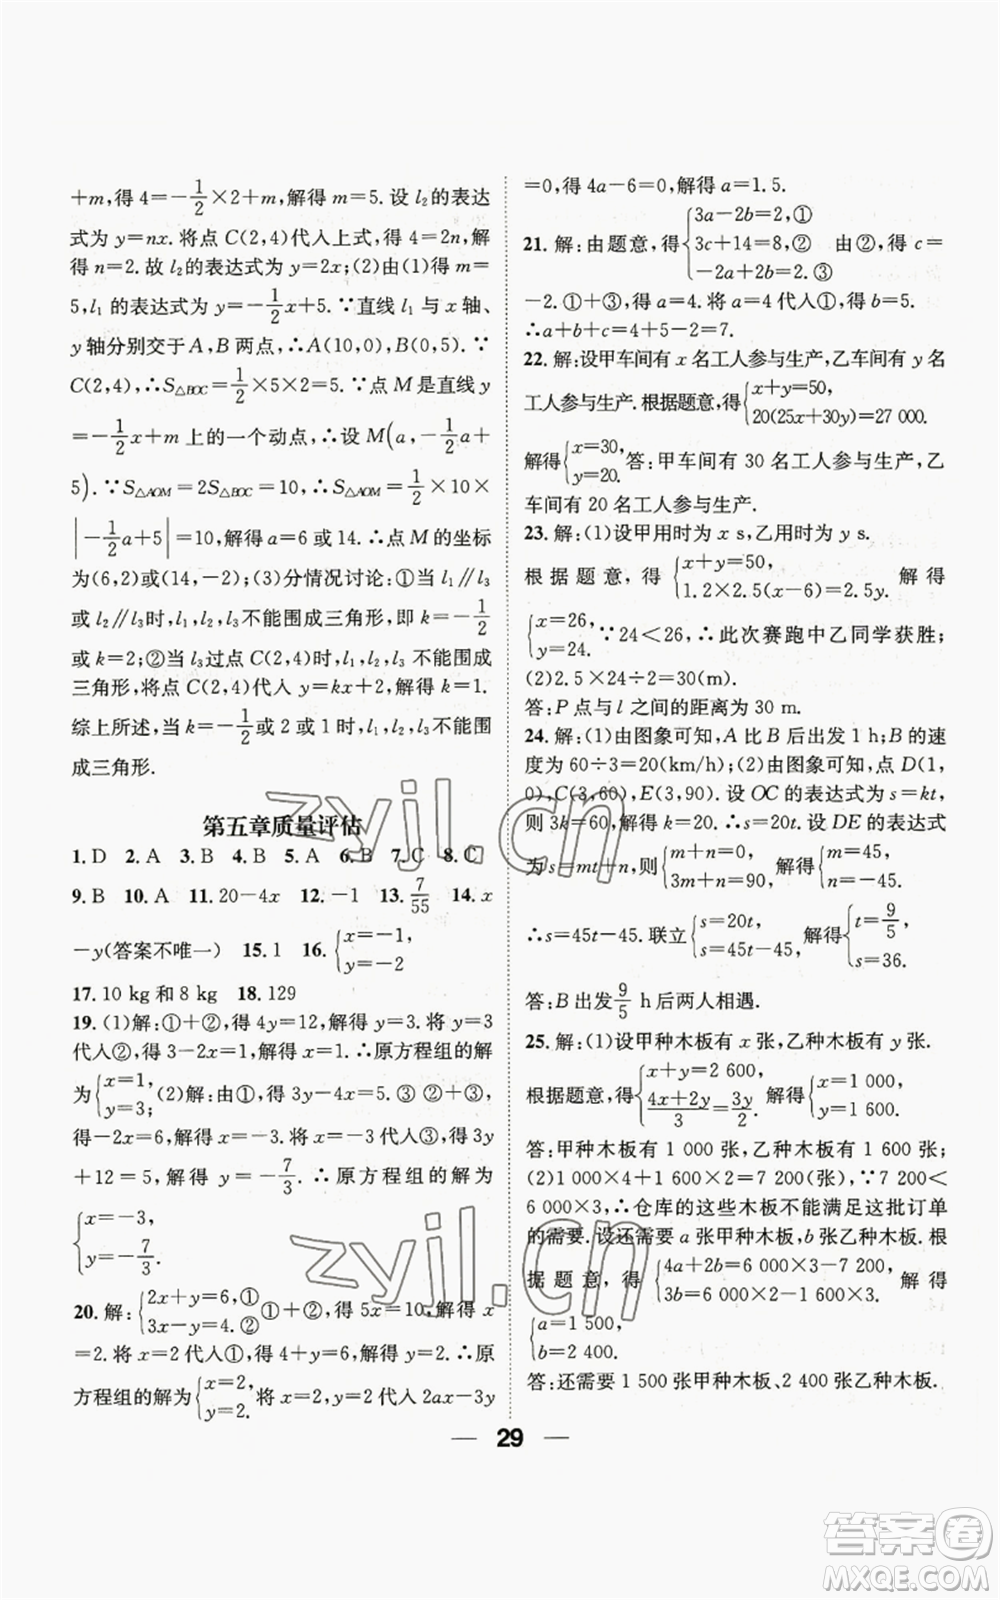 +m,得 4=-1/2×2+m,解得 m=5. 设 l₂的表达
式为 y=nx. 将点 C(2,4)代人上式,得 4=2n,解
得 n=2. 故 l₂的表达式为 y=2x;(2)由(1)得 m=
5,l₁ 的表达式为 y=-1/2x+5. ∵直线 l₁ 与 x 轴、
y 轴分别交于 A,B 两点,∴A(10,0),B(0,5). ∵
C(2,4),∴S△BOC=1/2×5×2=5. ∵点 M 是直线 y
=-1/2x+m 上的一个动点,∴设 M(a,-1/2a+
5). ∵S△AOM=2S△BOC=10,∴S△AOM=1/2×10×
|-1/2a+5|=10,解得 a=6 或 14. ∴点 M 的坐标
为(6,2)或(14,-2);(3)分情况讨论:①当 l₁∥l₃
或 l₂∥l₃时,l₁,l₂,l₃不能围成三角形,即 k=-1/2
或 k=2;②当 l₃过点 C(2,4)时,l₁,l₂,l₃ 不能围成
三角形,将点 C(2,4)代人 y=kx+2,解得 k=1.
综上所述,当 k=-1/2或 2 或 1 时,l₁,l₂,l₃不能围
成三角形.
第五章质量评估
1. D 2. A 3. B 4. B 5. A 6. B 7. C 8. C
9. B 10. A 11. 20-4x 12. -1 13. 7/55 14. x
-y(答案不唯一) 15. 1 16. {x=-1, y=-2
17. 10 kg 和 8 kg 18. 129
19. (1)解:①+②,得 4y=12,解得 y=3. 将 y=3
代人②,得 3-2x=1,解得 x=1. ∴原方程组的解
为{x=1, y=3; (2)解:由①,得 3y-4x=5. ③ ②+③,得
-2x=6,解得 x=-3. 将 x=-3 代人③,得 3y
+12=5,解得 y=-7/3. ∴原方程组的解为
{x=-3, y=-7/3.
20. 解:{2x+y=6,① 3x-y=4.② ①+②,得 5x=10,解得 x
=2. 将 x=2 代人①,得 4+y=6,解得 y=2. ∴原
方程组的解为{x=2, y=2. 将 x=2,y=2 代人 2ax-3y
=0,得 4a-6=0,解得 a=1.5.
21. 解:由题意,得{3a-2b=2,① 3c+14=8,② -2a+2b=2.③ 由②,得 c=
-2. ①+③,得 a=4. 将 a=4 代人①,得 b=5.
∴a+b+c=4+5-2=7.
22. 解:设甲车间有 x 名工人参与生产,乙车间有 y 名
工人参与生产. 根据题意,得{x+y=50, 20(25x+30y)=27 000.
解得{x=30, y=20. 答:甲车间有 30 名工人参与生产,乙
车间有 20 名工人参与生产.
23. 解:(1)设甲用时为 x s,乙用时为 y s.
根据题意,得{x+y=50, 1.2×2.5(x-6)=2.5y. 解得
{x=26, y=24. ∵24<26,∴此次赛跑中乙同学获胜;
(2)2.5×24÷2=30(m).
答:P 点与 l 之间的距离为 30 m.
24. 解:(1)由图象可知,A 比 B 后出发 1 h;B 的速
度为 60÷3=20(km/h);(2)由图象可知,点 D(1,
0),C(3,60),E(3,90). 设 OC 的表达式为 s=kt,
则 3k=60,解得 k=20. ∴s=20t. 设 DE 的表达式
为 s=mt+n,则{m+n=0, 3m+n=90, 解得{m=45, n=-45.
∴s=45t-45. 联立{s=20t, s=45t-45, 解得{t=9/5, s=36.
答:B 出发9/5 h后两人相遇.
25. 解:(1)设甲种木板有 x 张,乙种木板有 y 张.
根据题意,得{x+y=2 600, (4x+2y)/3=3y/2. 解得{x=1 000, y=1 600.
答:甲种木板有 1 000 张,乙种木板有 1 600 张;
(2)1 000×4+1 600×2=7 200(张),∵7 200<
6 000×3,∴仓库的这些木板不能满足这批订单
的需要. 设还需要 a 张甲种木板,b 张乙种木板. 根
据题意,得{4a+2b=6 000×3-7 200, 3b=6 000×2-1 600×3. 解得
{a=1 500, b=2 400.
答:还需要 1 500 张甲种木板、2 400 张乙种木板.
29
zyjl.cn
zyjl.cn
答案圈
MXQE.COM